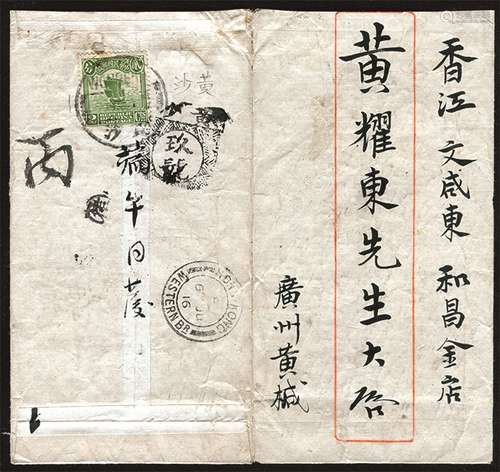 香江 文咸東 和昌金店
黃耀東先生大啓
廣州黃椷
玖龍
端午日發
丙
HONG KONG
WESTERN BR.
6 JU
16
2